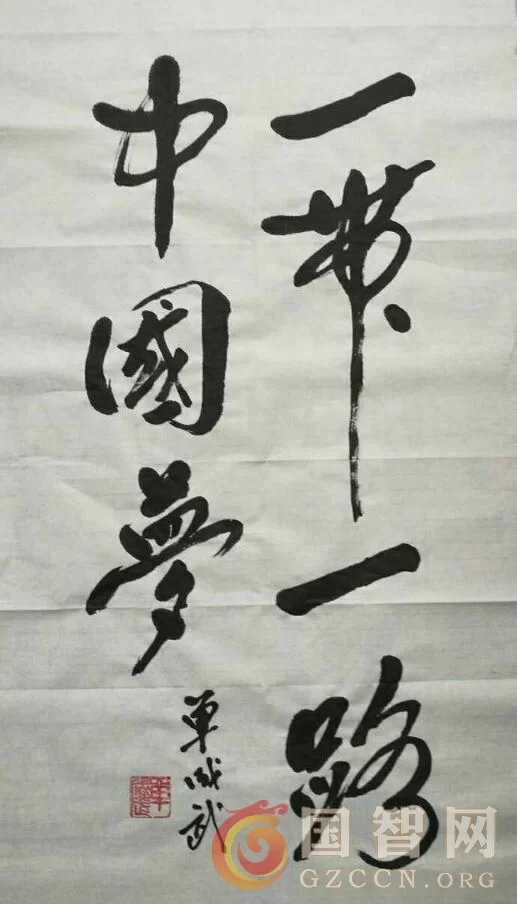 一帶一路
中國夢
单成武
国智网
GZCCN.ORG